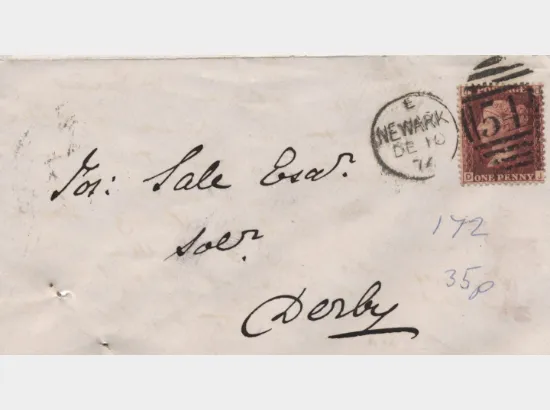 E
NEWARK
DE 10
74
POSTAGE
51
D ONE PENNY J
Jos: Sale Esqr.
Solr.
Derby
172
35p